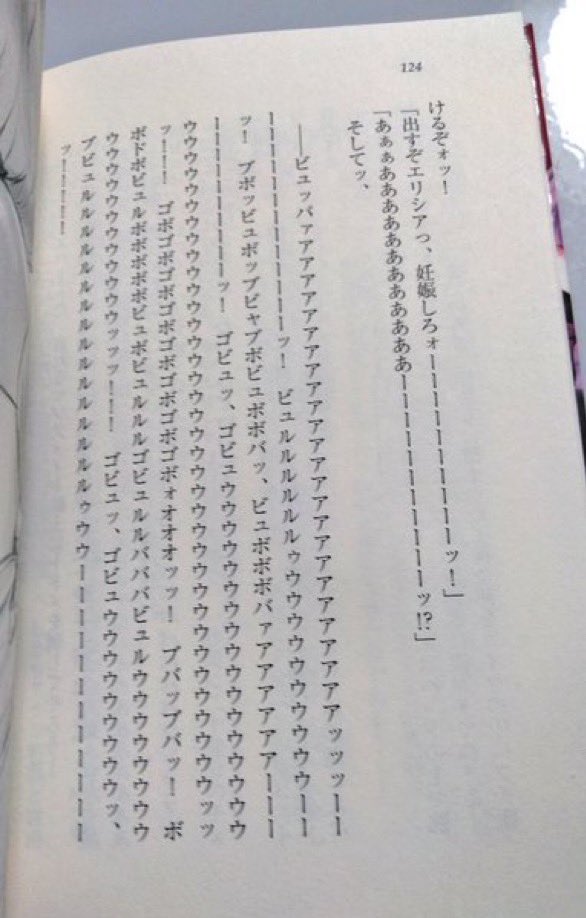 124
けるぞォッ！
「出すぞエリシアっ、妊娠しろォーーーーーーーーーーッ！」
「あぁぁあああああああああああああーーーーーーーーーーッ!?」
そしてッ、
――ビュッパァアアアアアアアアアアアアアアアアアアアアアアアアアッッッーー
ーーーーーーーーーーーッ！　ビュルルルルルルゥウウウウウウウウウウウーー
ッ！　ブボッビュボップビャブボビュボボバッ、ビュボボボバァアアアアアアーーー
ーーーーーーーーッ！　ゴビュッ、ゴビュウウウウウウウウウウウウウウウウ
ウウウウウウウウウウウウウウウウウウウウウウウウウウウウウウウウウウッッ
ッ！！！　ゴボゴボゴボゴボゴボゴボゴボォオオオオッッ！　ブバッブバッ！　ボ
ボドボビュルボボボボボビュボビュルルルゴビュルルバババビュルウウウウウウウウ
ウウウウウウウウウウウッッッ！！！　ゴビュッ、ゴビュウウウウウウウウウウッ、
ブビュルルルルルルルルルルルルルルルルルゥウウーーーーーーーーーーーーー
ッーーーー